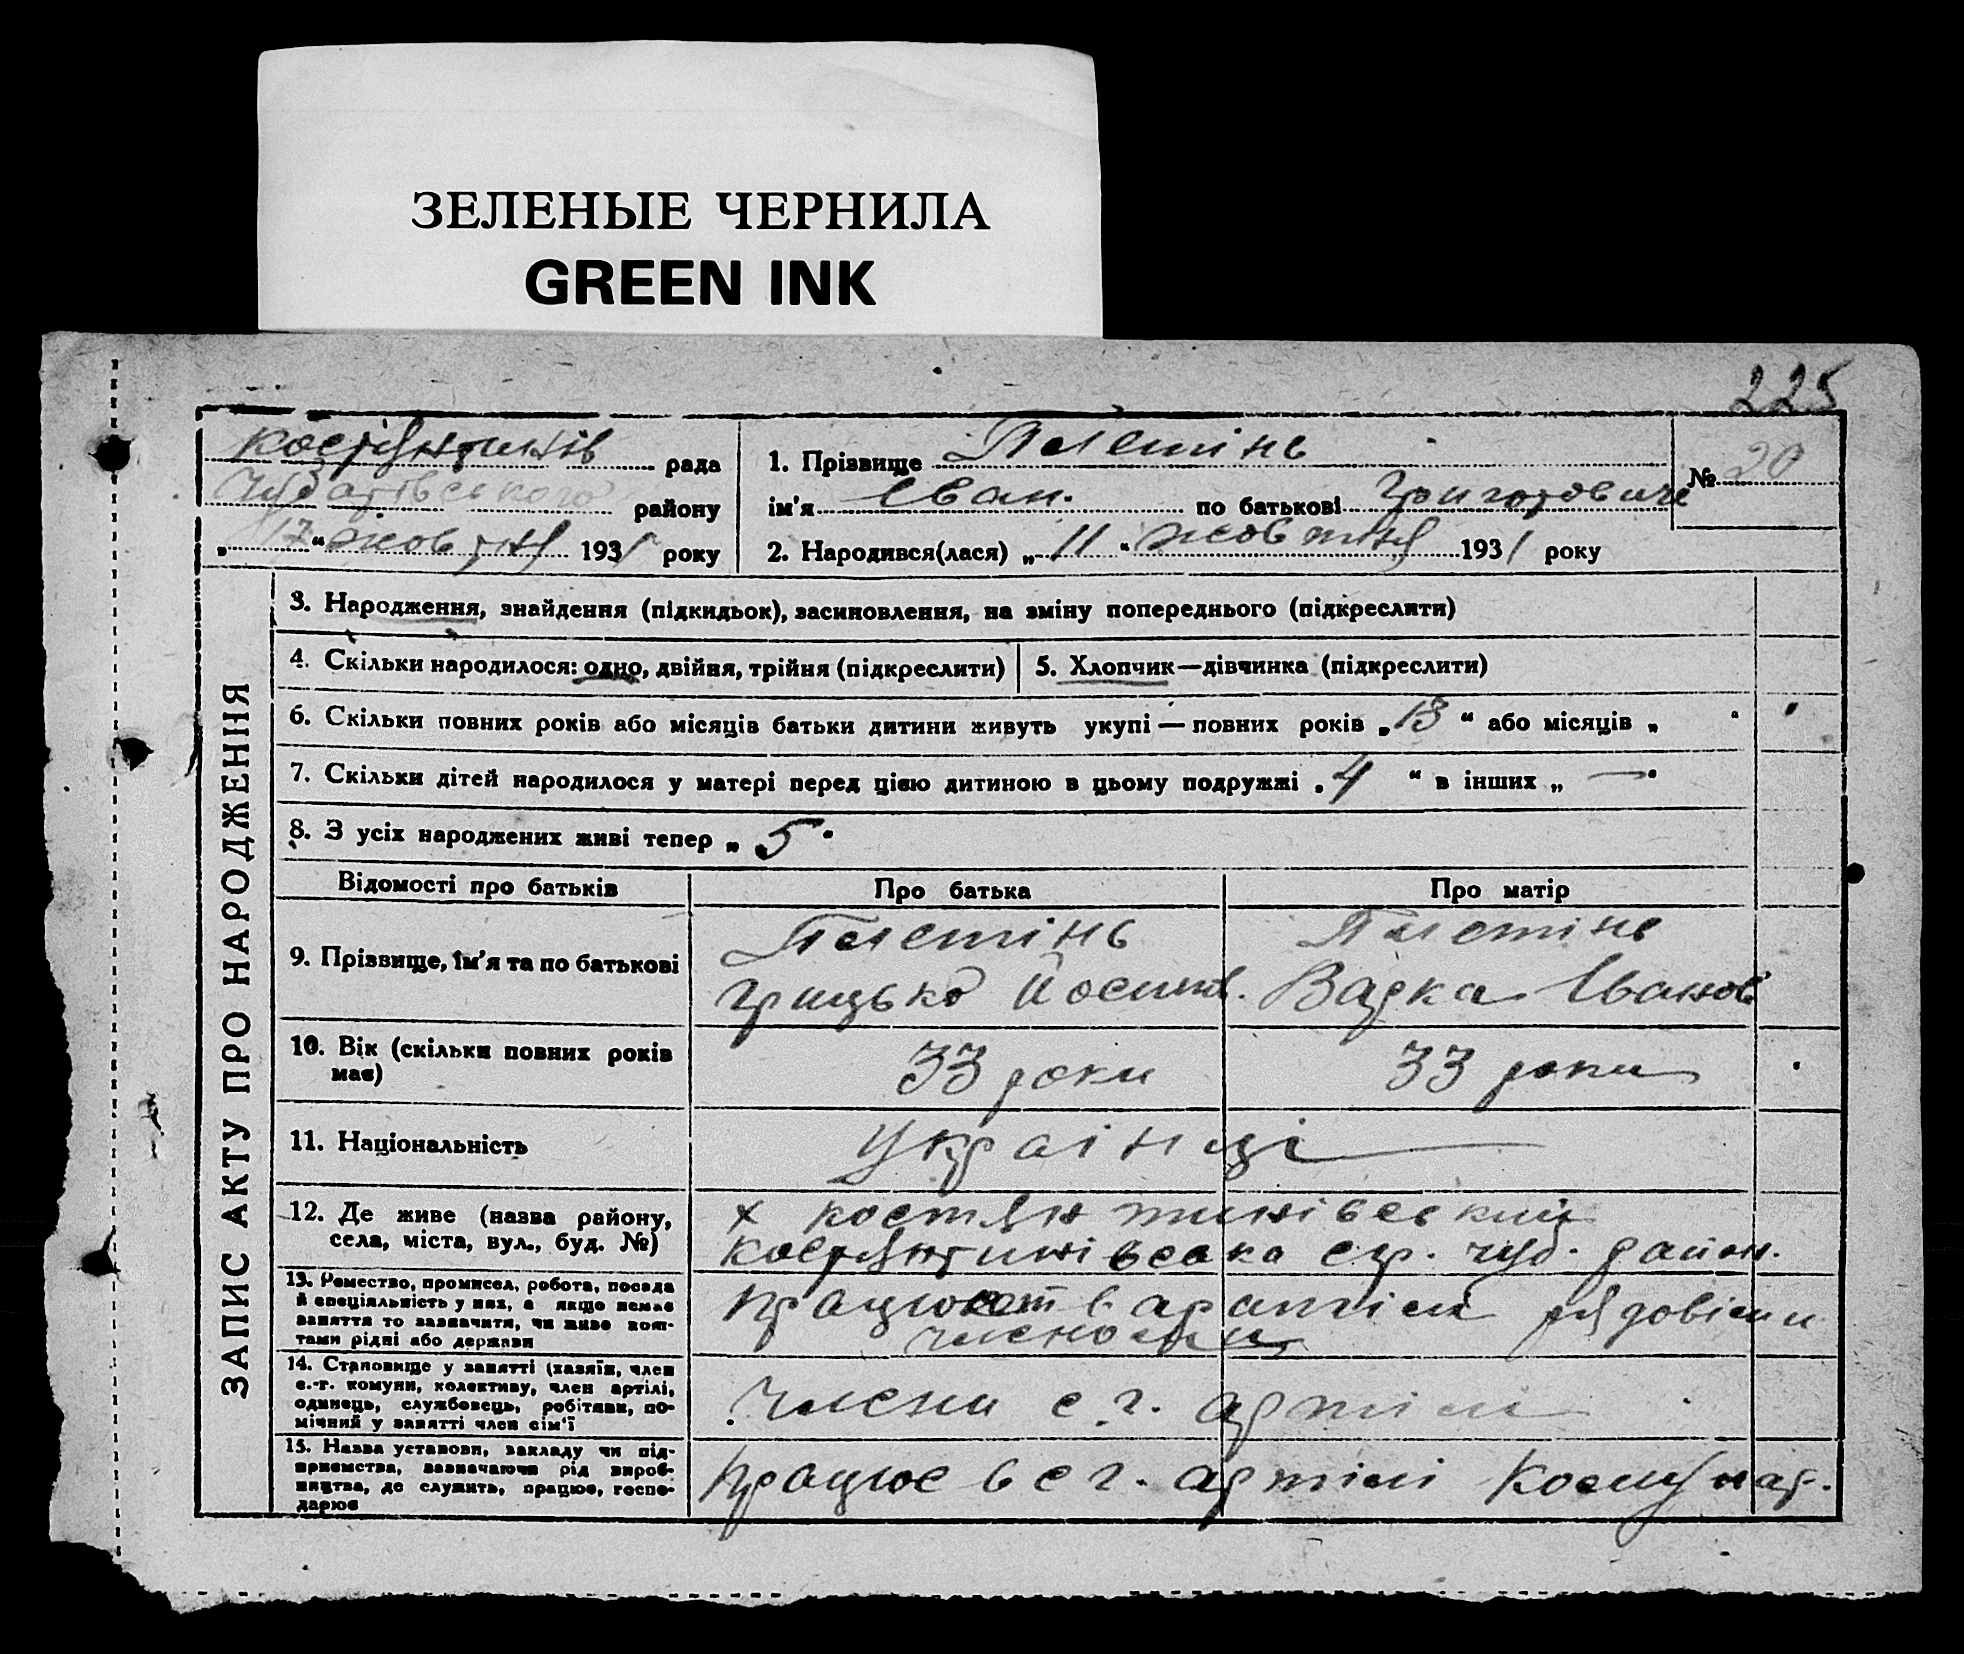 ЗЕЛЕНЫЕ ЧЕРНИЛА
GREEN INK
225
Костянтинів рада
району
„17“ жовтня 1931 року
1. Прізвище Пластінь
ім'я Іван. по батькові Григорович
2. Народився(лася) „11“ жовтня 1931 року
№ 20
ЗАПИС АКТУ ПРО НАРОДЖЕННЯ
3. Народження, знайдення (підкидьок), засиновлення, на зміну попереднього (підкреслити)
4. Скільки народилося: одно, двійня, трійня (підкреслити)
5. Хлопчик—дівчинка (підкреслити)
6. Скільки повних років або місяців батьки дитини живуть укупі — повних років „13“ або місяців „ “
7. Скільки дітей народилося у матері перед цією дитиною в цьому подружжі „4“ в інших „—“
8. З усіх народжених живі тепер „5“
Відомості про батьків
Про батька
Про матір
9. Прізвище, ім'я та по батькові
Пластінь
Грицько Йосипов.
Пластінь
Іванов
10. Вік (скільки повних років
має)
33 роки
33 роки
11. Національність
Українці
12. Де живе (назва району,
села, міста, вул., буд. №)
х Костянтинівський
Костянтинівська с/р. Чуб. район.
13. Ремество, промисел, робота, посада
й спеціяльність у них, а якщо немає
заняття то зазначити, чи живе кош-
тами рідні або держави
Працюют в артілі рядовіми
членами
14. Становище у занятті (хазяїн, член
с.-г. комуни, колективу, член артілі,
одинець, службовець, робітник, по-
мічний у занятті член сім'ї
Члени с.г. артіли
15. Назва установи, закладу чи під-
приємства, зазначаючи рід вироб-
ництва, де служить, працює, госпо-
дарює
Працює в с г. артілі